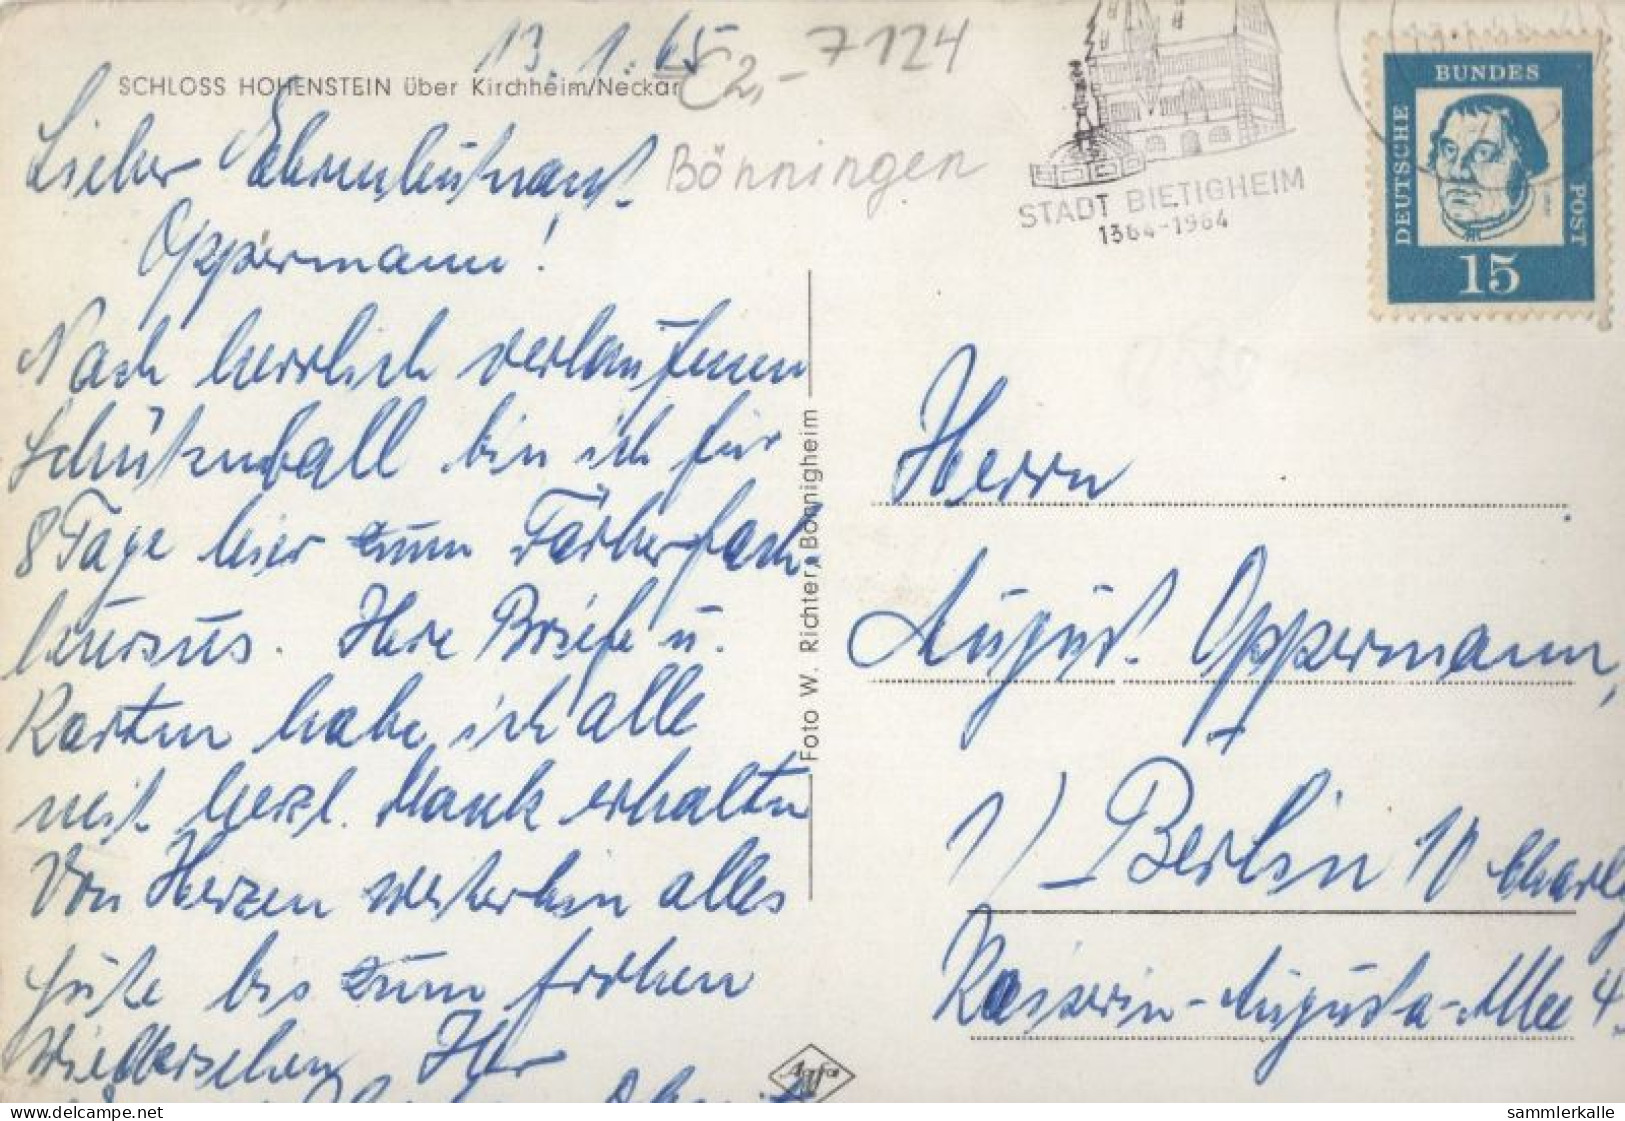 13.1.65
C 2,- 7124
SCHLOSS HOHENSTEIN über Kirchheim/Neckar
Bönningen
STADT BIETIGHEIM
1364-1964
DEUTSCHE
BUNDES
POST
15
Lieber
Oppermann!
Nach herrlich verlaufenen
Schützenball bin ich für
8 Tage hier zum Färberfach
kursus. Ihre Briefe u.
Karten habe ich alle
mit herzl. Dank erhalten
Von Herzen weiterhin alles
Gute bis zum frohen
Wiedersehen Ihr
Foto W. Richter, Bönnigheim
Agfa
Herrn
August Oppermann,
1) Berlin 10 Charlg
Kaiserin-Augusta-Allee 4
delcampe.net
sammlerkalle